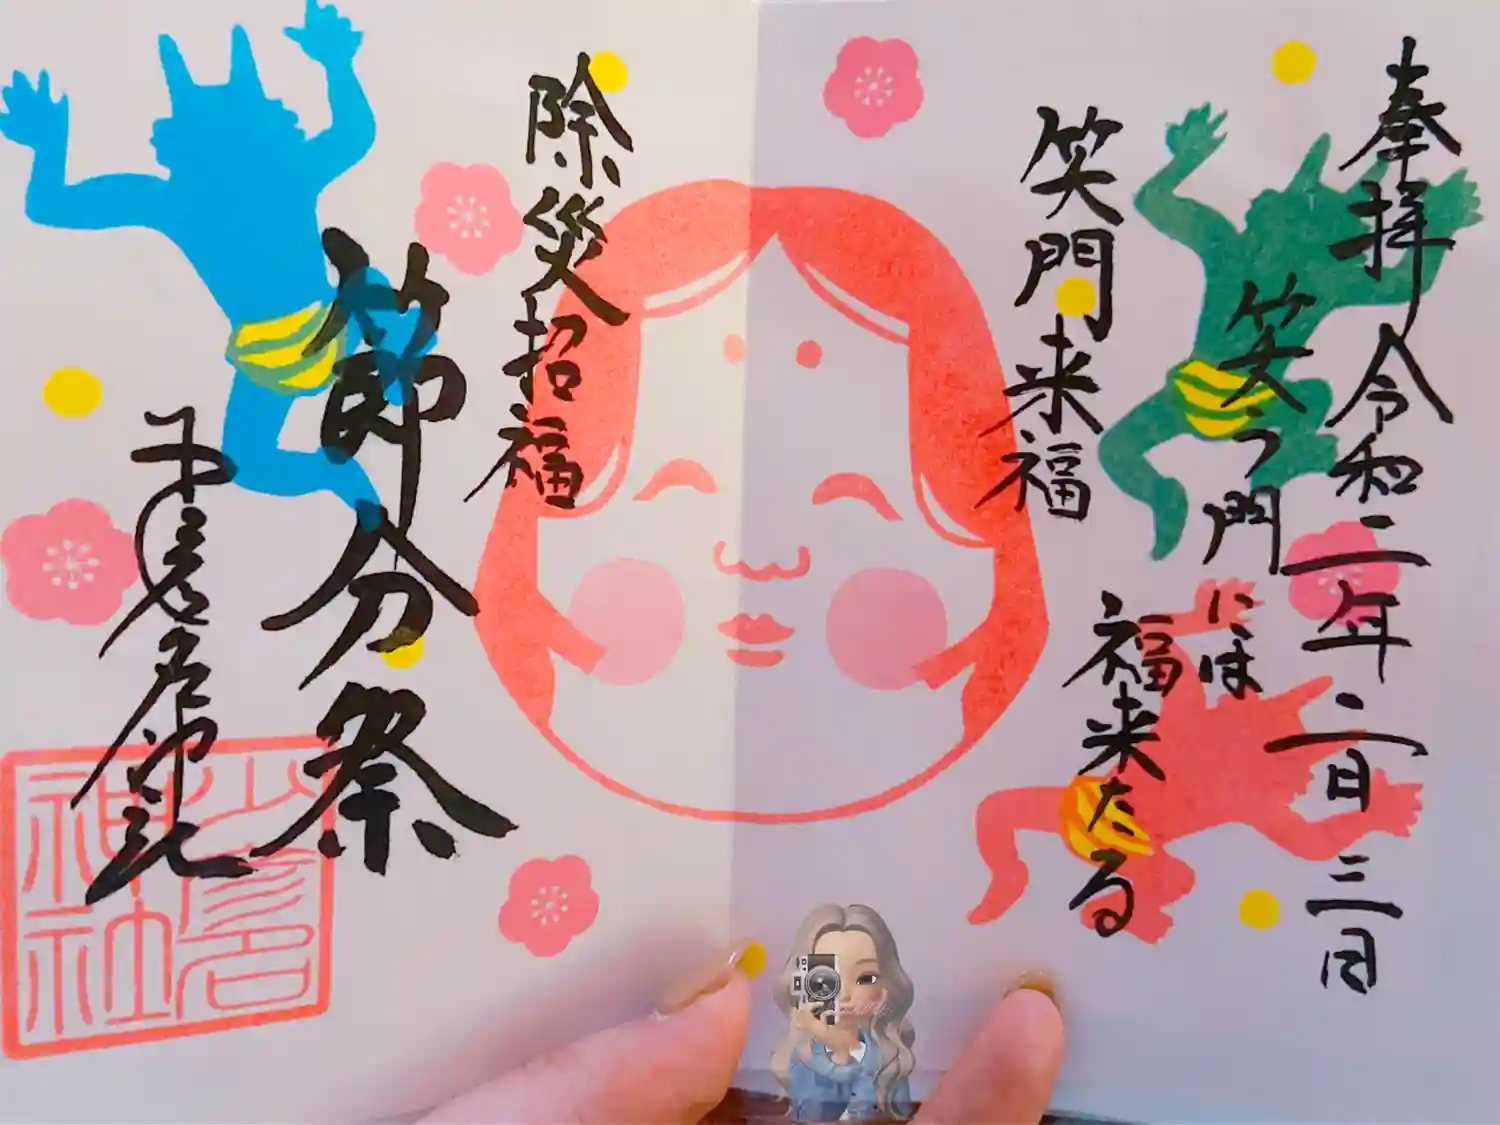 奉拝 令和二年二月三日
笑う門
には
福来たる
笑門来福
除災招福
節分祭
少彦名神社
少彦名
神社